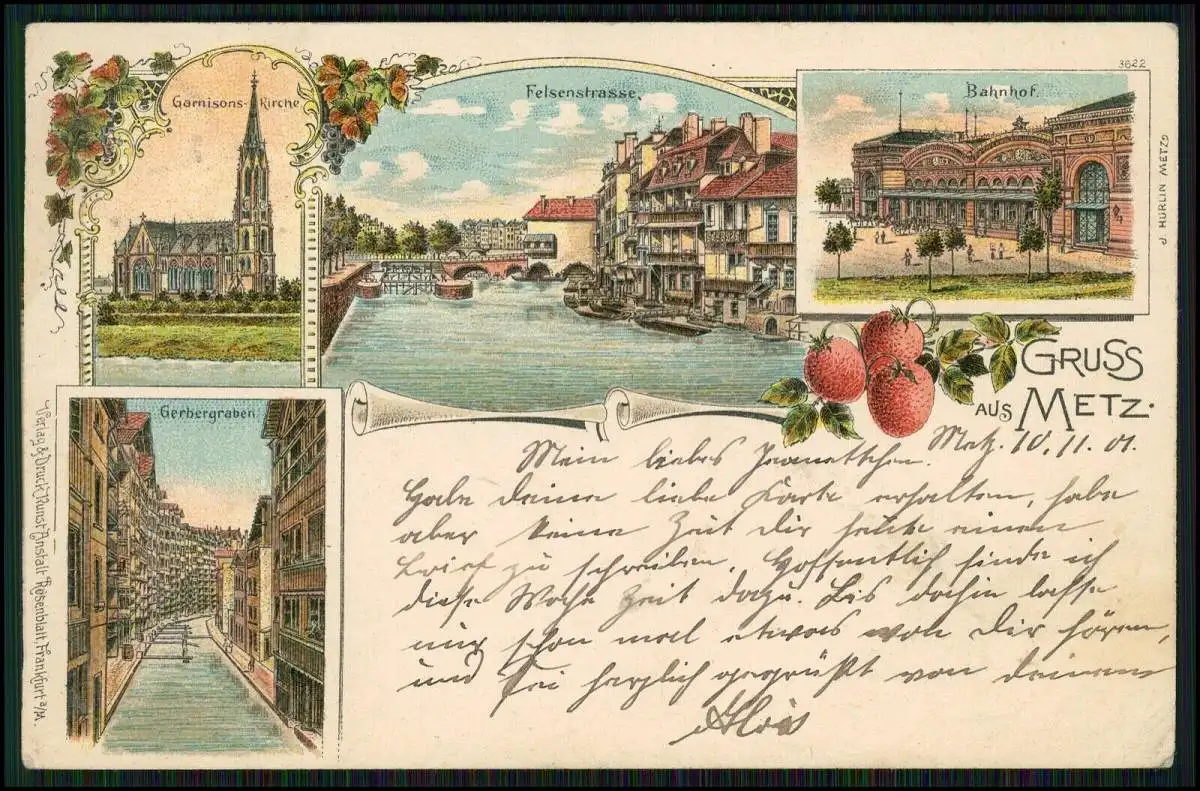 3622
Garnisons-Kirche
Felsenstrasse.
Bahnhof.
P. HÜRLIN METZ
Gerbergraben
GRUSS
AUS METZ.
Verlag & Druck Kunst Anstalt Rosenblatt, Frankfurt a/M.
Metz. 10.11.01.
Mein liebes Jeanettchen.
Habe deine liebe Karte erhalten, habe
aber keine Zeit Dir heute einen
Brief zu schreiben. Hoffentlich finde ich
diese Woche Zeit dazu. Bis dahin lasse
mir schon mal etwas von Dir hören,
und sei herzlich gegrüßt von deinem
Alois